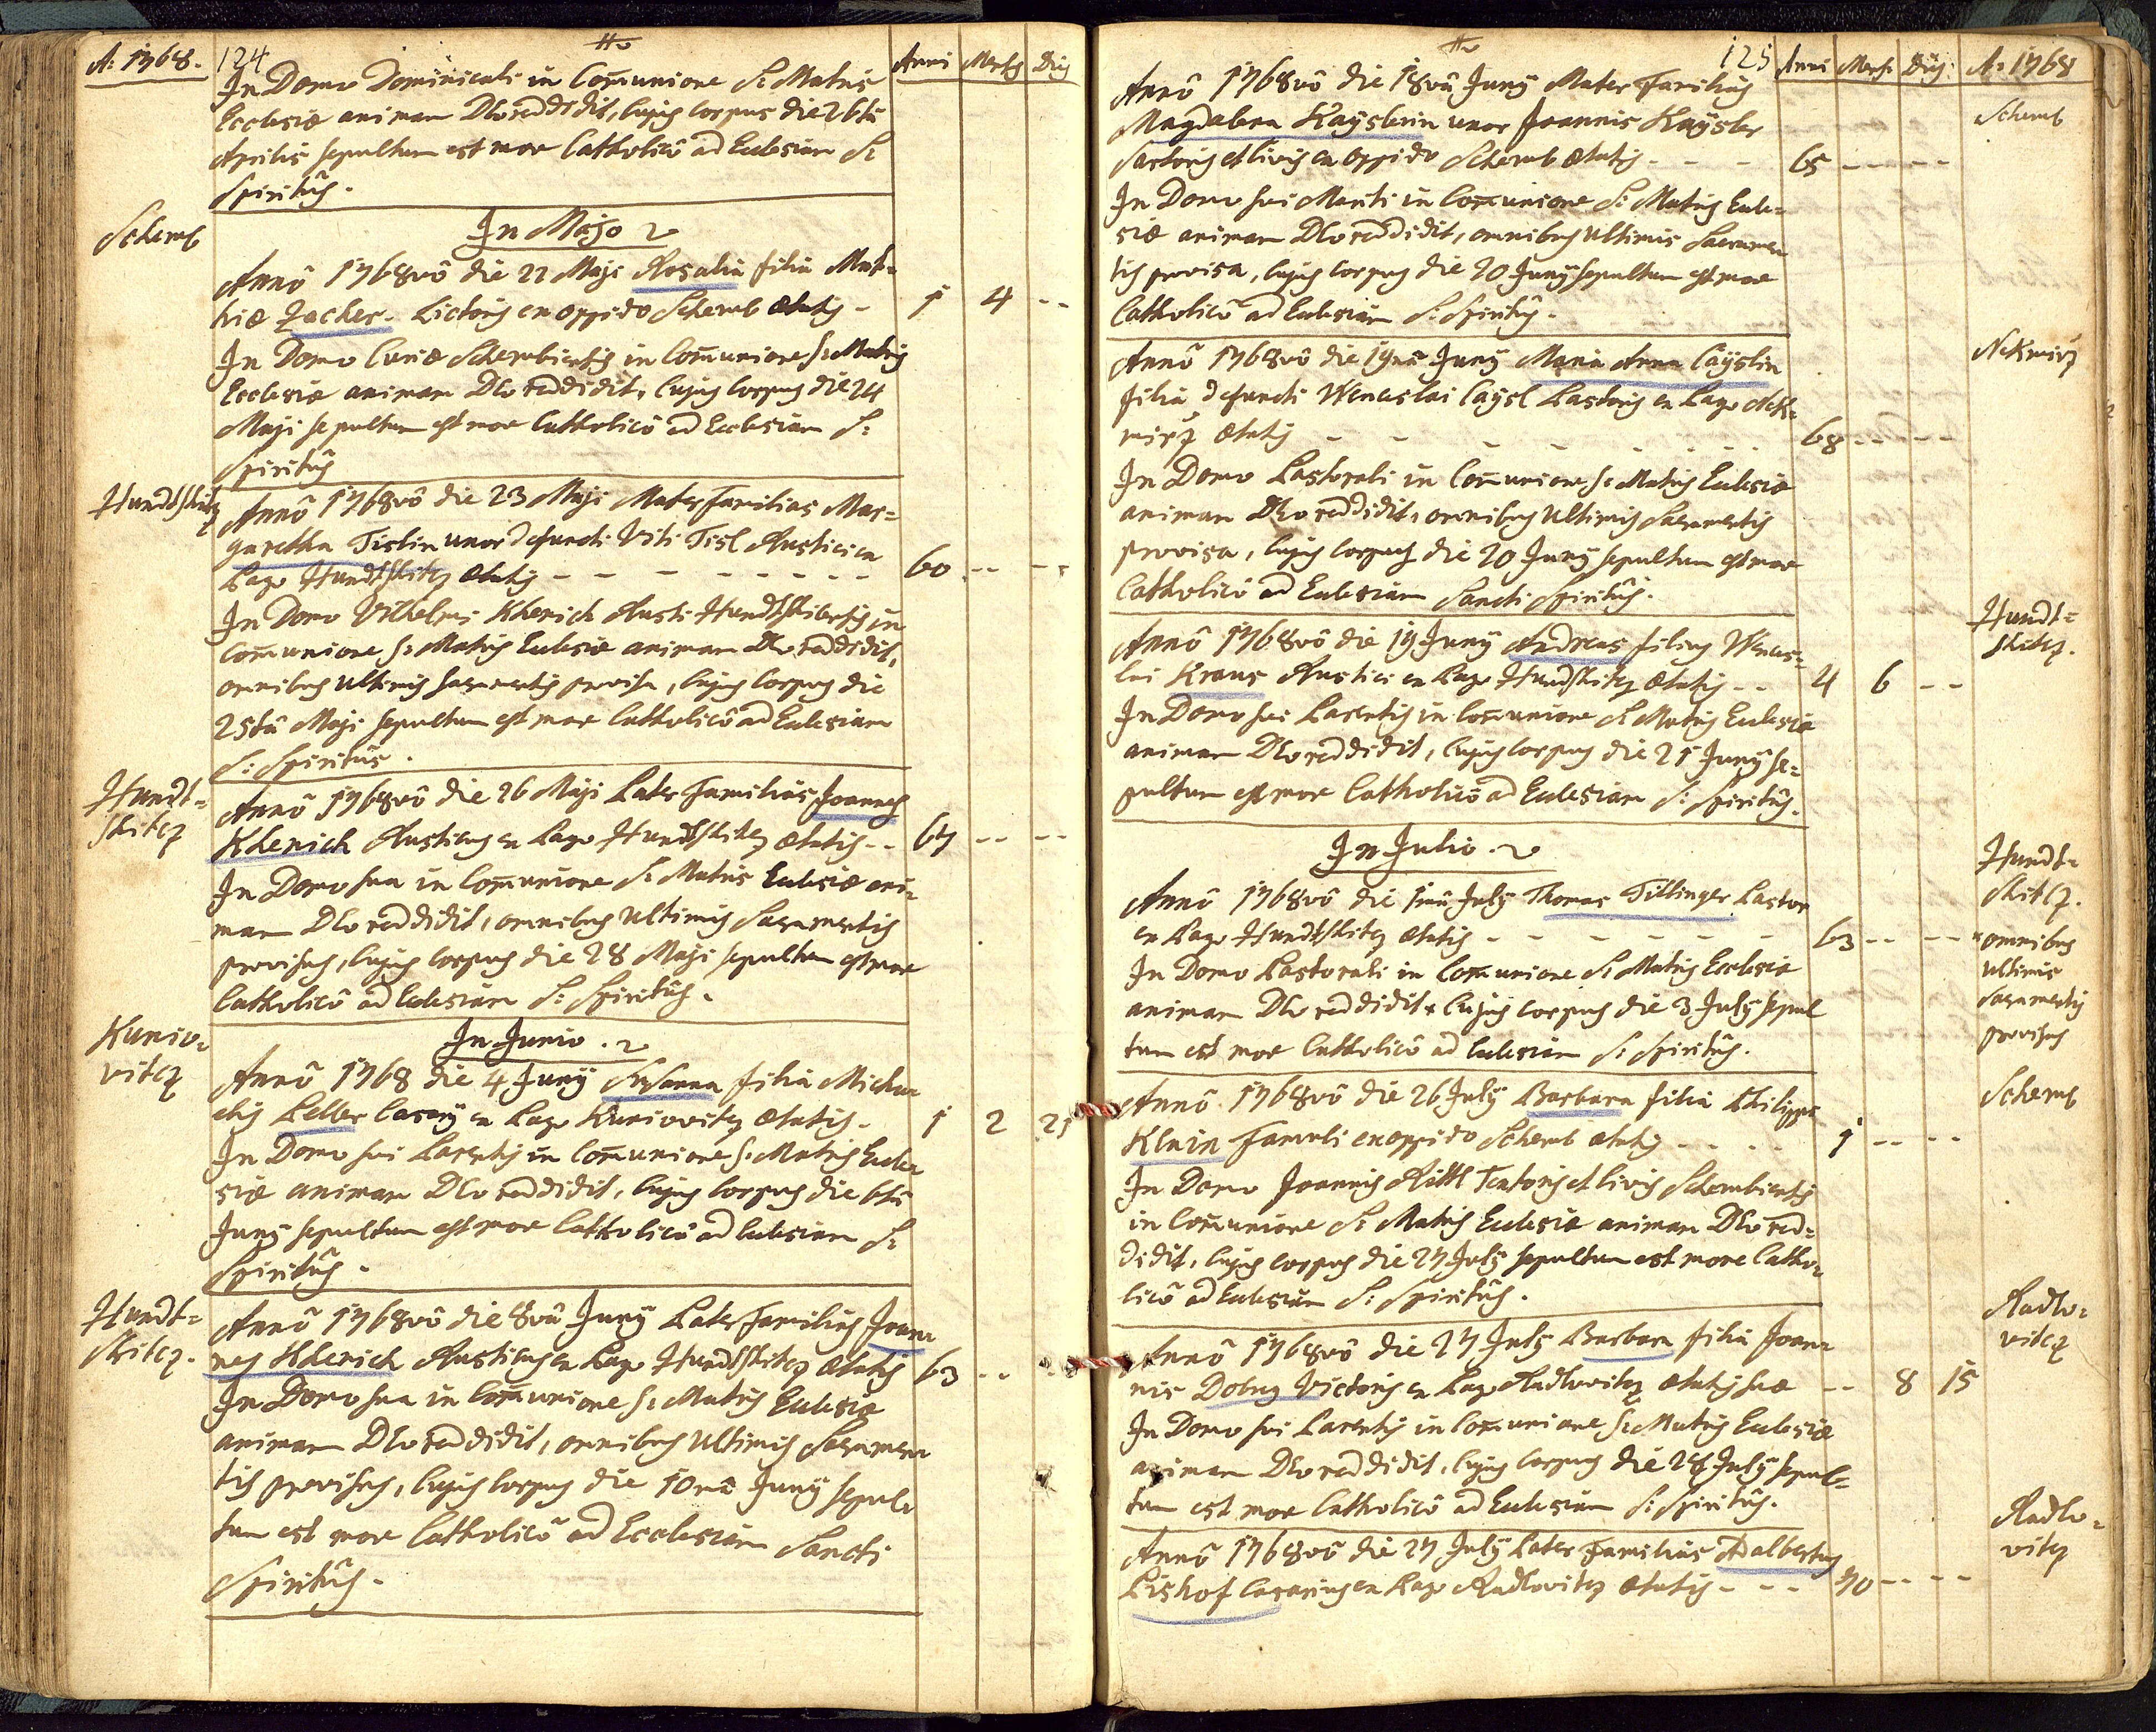 A: 1768.
124
Anni Mens Dies
In Domo Dominicali in Com̄unione S: Matris
Ecclesiæ animam Deo reddidit, cujus corpus die 26tâ
Aprilis sepultum est more Catholicô ad Ecclesiam S:
Spiritûs.
In Majo
Scherub
Annô 1768vô die 22 Maji Rosalia filia Mat=
hiæ Zacher Lictoris ex oppido Scherub ætatis - 1 4 --
In Domo Curiæ Scherubiensis in Com̄unione S: Matris
Ecclesiæ animam Deo reddidit, cujus corpus die 24
Maji sepultum est more Catholicô ad Ecclesiam S:
Spiritûs
Hundtshitz
Annô 1768vô die 23 Maji Mater Familias Mar=
garetha Tislin uxor defuncti Viti Tisl Rustici ex
Pago Hundtshitz ætatis - - - - - - - - - 60 -- --
In Domo Vilhelmi Kherich Rusti Hundtshicensis in
Com̄unione S: Matris Ecclesiæ animam Deo reddidit,
omnibus ultimis sacramentis provisa, cujus corpus die
25tâ Maji sepultum est more Catholicô ad Ecclesiam
S: Spiritûs.
Hundt=
shitz
Annô 1768vô die 26 Maji Pater Familias Joannes
Kherich Rusticus ex Pago Hundtshitz ætatis -- 67 -- --
In Domo sua in Com̄unione S: Matris Ecclesiæ ani=
mam Deo reddidit, omnibus ultimis Sacramentis
provisus, cujus corpus die 28 Maji sepultum est more
Catholicô ad Ecclesiam S: Spiritûs.
In Junio.
Kunio=
vitz
Annô 1768 die 4 Junÿ Susanna filia Micha
elis Peller Casarÿ ex Pago Kuniovitz ætatis - 1 2 21
In Domo sui Parentis in Com̄unione S: Matris Eccle
siæ animam Deo reddidit, cujus corpus die 6tâ
Junÿ sepultum est more Catholicô ad Ecclesiam S:
Spiritûs.
Hundt=
shitz.
Annô 1768vô die 8vâ Junÿ Pater Familias Joan
nes Kherich Rusticus ex Pago Hundtshitz ætatis 63 -- --
In Domo sua in Com̄unione S: Matris Ecclesiæ
animam Deo reddidit, omnibus ultimis Sacramen
tis provisus, cujus corpus die 10mâ Junÿ sepul
tum est more Catholicô ad Ecclesiam Sancti
Spiritûs.
125
Anni Mens. Dies: A: 1768
Scherub
Annô 1768vô die 18vâ Junÿ Mater Familias
Magdalena Kaÿslerin uxor Joannis Kaÿsler
Sartoris et Civis ex oppido Scherub ætatis - - - 65 -- --
In Domo sui Mariti in Com̄unione S: Matris Eccle=
siæ animam Deo reddidit, omnibus ultimis Sacramen
tis provisa, cujus corpus die 20 Junÿ sepultum est more
Catholicô ad Ecclesiam S: Spiritûs.
Nekmirz
Annô 1768vô die 19nâ Junÿ Maria Anna Caÿslin
filia defuncti Wenceslai Caÿsl Pastoris ex Pago Nek=
mirz ætatis - - - - - - - 68 -- --
In Domo Pastorali in Com̄unione S: Matris Ecclesiæ
animam Deo reddidit, omnibus ultimis Sacramentis
provisa, cujus corpus die 20 Junÿ sepultum est more
Catholicô ad Ecclesiam Sancti Spiritûs.
Hundt=
shitz.
Annô 1768vô die 19 Junÿ Andreas filius Wences=
lai Kraus Rustici ex Pago Hundtshitz ætatis -- 4 6 --
In Domo sui Parentis in Com̄unione S: Matris Ecclesiæ
animam Deo reddidit, cujus corpus die 21 Junÿ se=
pultum est more Catholicô ad Ecclesiam S: Spiritûs.
In Julio.
Hundt=
shitz.
Annô 1768vô die 1mâ Julÿ Thomas Tillinger Pastor
ex Pago Hundtshitz ætatis - - - - - - 63 -- --
In Domo Pastorali in Com̄unione S: Matris Ecclesiæ
animam Deo reddidit* cujus corpus die 3 Julÿ sepul
tum est more Catholicô ad Ecclesiam S: Spiritûs.
*omnibus
ultimis
Sacramentis
provisus
Scherub
Annô 1768vô die 26 Julÿ Barbara filia Philippi
Klain Famuli ex oppido Scherub ætatis - - - - 1 -- --
In Domo Joannis Rittl Textoris et Civis Scherubiensis
in Com̄unione S: Matris Ecclesiæ animam Deo red=
didit, cujus corpus die 27 Julÿ sepultum est more Catho=
licô ad Ecclesiam S: Spiritûs.
Radlo=
vitz
Annô 1768vô die 27 Julÿ Barbara filia Joan
nis Dobrÿ Victoris ex Pago Radlovitz ætatis suæ -- 8 15
In Domo sui Parentis in Com̄unione S: Matris Ecclesiæ
animam Deo reddidit, cujus corpus die 28 Julÿ sepul=
tum est more Catholicô ad Ecclesiam S: Spiritûs.
Radlo=
vitz
Annô 1768vô die 27 Julÿ Pater Familias Adalbertus
Pishof Casarius ex Pago Radlovitz ætatis - - - 70 -- --